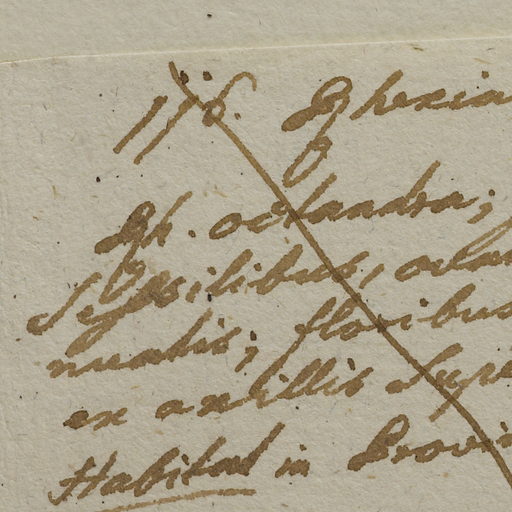 176. Ghexia
Gh. octandra;
Sessilibus, octan
nuatis; floribus
ex axillis Supe
Habitat in Provin